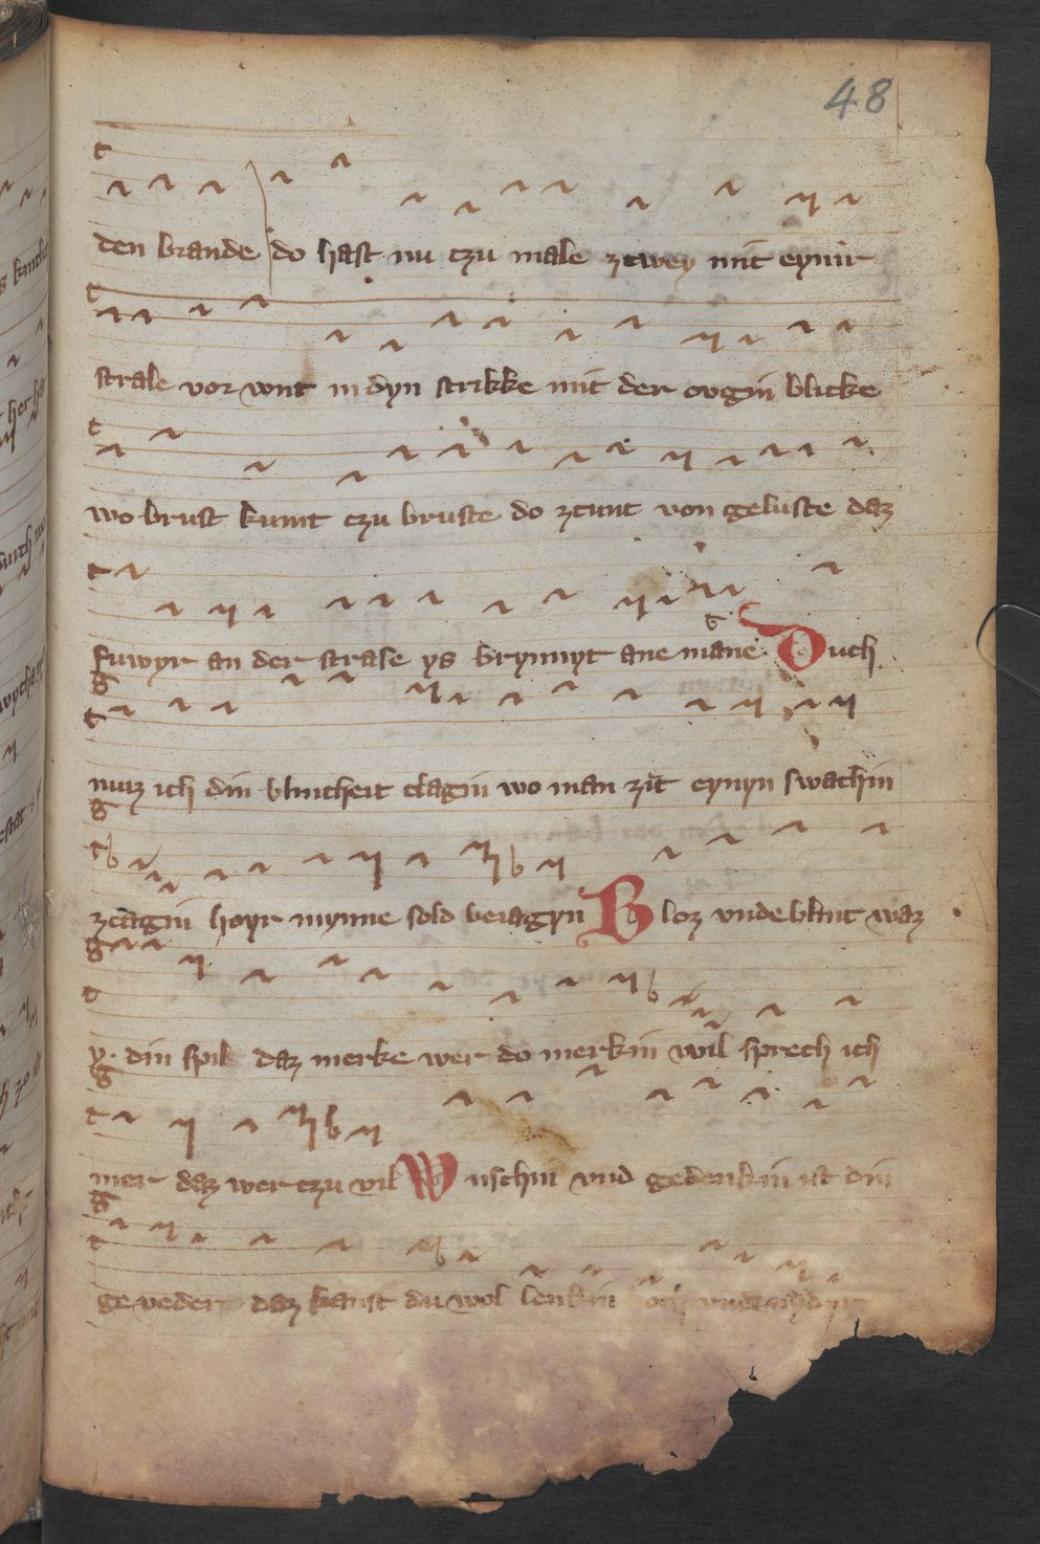 48
den brande do hast nu czu male zcwey mit eynir
strale vor wnt in dyn strikke mit der ovgin blicke
wo brust kumt czu bruste do zcunt von geluste daz
fuwyr an der strase ys brynnyt ane mane Ouch
muz ich din blintheit clagin wo man zit eynyn swachin
zcagin hoyr mynne sold beiagyn Bloz vnde blint waz
y din spil daz merke wer do merkin wil sprech ich
mer daz wer czu vil Wnschin vnd gedenkin ist din
gevedere daz kanst du wol lenkin